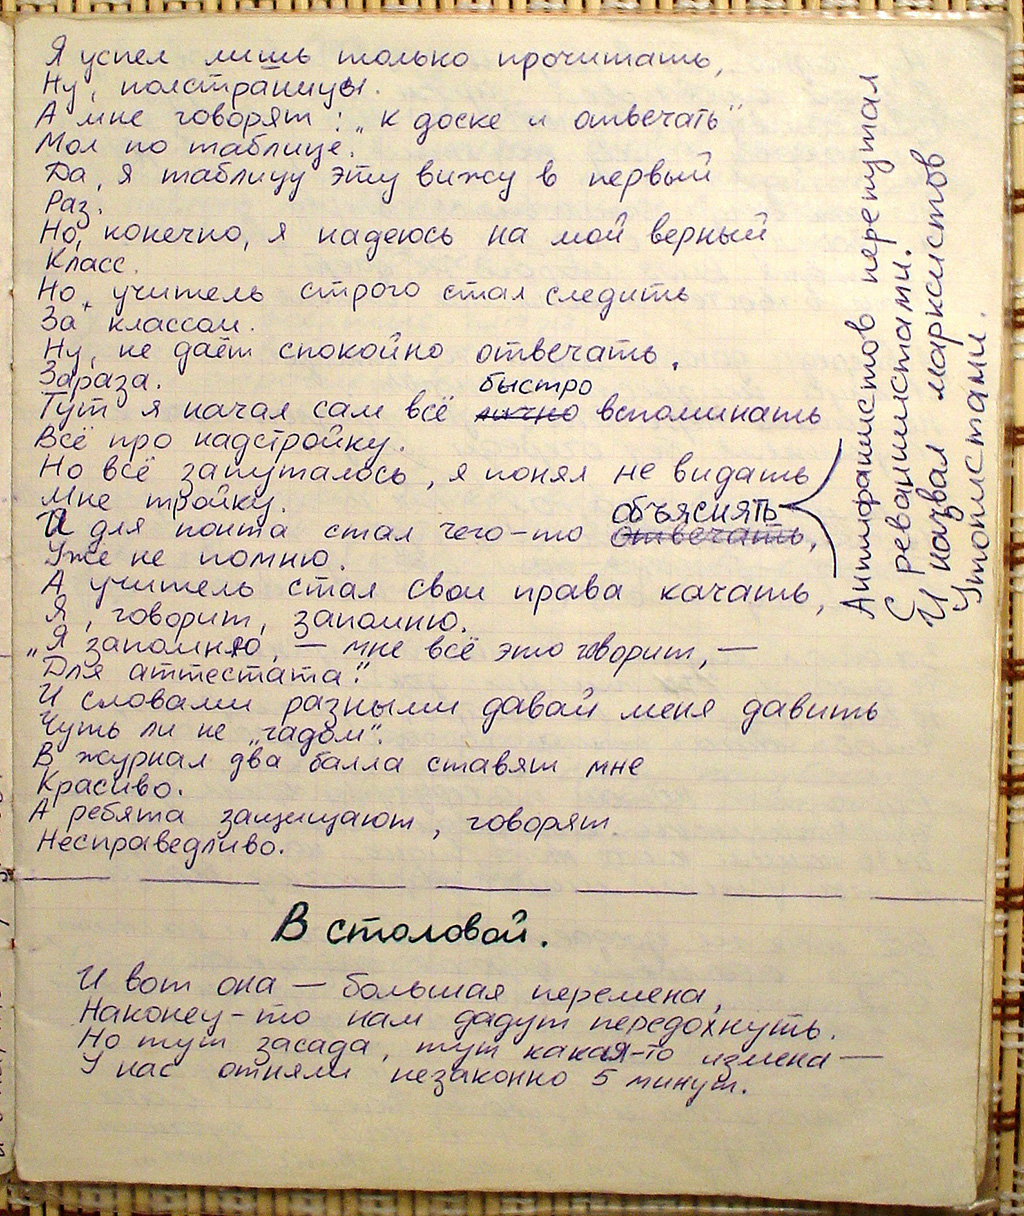 Я успел лишь только прочитать,
Ну, полстраницы.
А мне говорят: „к доске и отвечать"
Мол по таблице.
Да, я таблицу эту вижу в первый
Раз.
Но, конечно, я надеюсь на мой верный
Класс.
Но, учитель строго стал следить
За классом.
Ну, не даёт спокойно отвечать.
Зараза.
быстро
Тут я начал сам всё лично вспоминать
Всё про надстройку.
Но всё запуталось, я понял не видать
Мне тройку.
объяснять
И для понта стал чего-то отвечать,
Уже не помню.
А учитель стал свои права качать,
Я, говорит, запомню.
„Я запомню, — мне всё это говорит, —
Для аттестата".
И словами разными давай меня давить
Чуть ли не „гадом".
В журнал два балла ставят мне
Красиво.
А ребята защищают, говорят
Несправедливо.
Антифашистов перепутал
С реваншистами.
И назвал марксистов
Утопистами.
В столовой.
И вот она — большая перемена,
Наконец-то нам дадут передохнуть.
Но тут засада, тут какая-то измена —
У нас отняли незаконно 5 минут.